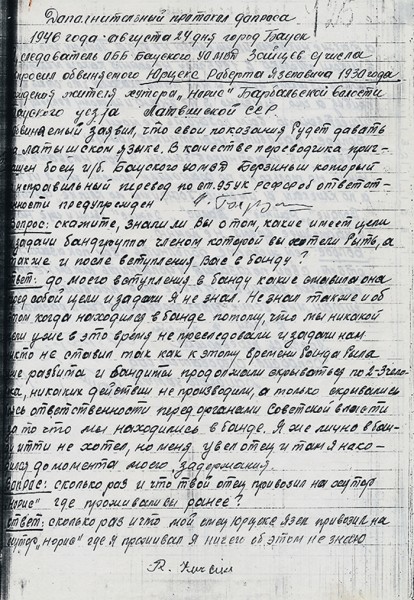 Дополнительный протокол допроса
1946 года августа 24 дня город Бауск
следователь ОББ Бауского УО МВД Зайцев сего числа
просил обвиняемого Юрциса Роберта Язеповича 1930 года
рождения жителя хутора „Норис" Барбальской волости
Бауского уезда Латвийской ССР.
Обвиняемый заявил, что свои показания будет давать
на латышском языке. В качестве переводчика приг-
лашен боец и/б. Бауского УОМВД Берзиньш который
неправильный перевод по ст. 95 УК РСФСР об ответст-
ности предупрежден
Вопрос: скажите, знали ли Вы о том, какие имеет цели
и задачи бандгруппа членом которой вы хотели быть, а
также и после вступления Вас в банду?
Ответ: до моего вступления в банду какие ставила она
перед собой цели и задачи Я не знал. Не знал также и об
этом когда находился в банде потому, что мы никакой
цели уже в это время не преследовали и задачи нам
никто не ставил так как к этому времени банда была
уже разбита и бандиты продолжали скрываться по 2-3 чело-
века, никаких действий не производили, а только скрывались
ись ответственности перед органами Советской власти
за то что мы находились в банде. Я же лично в бан-
ду итти не хотел, но меня увел отец и там я нахо-
дился до момента моего, задержания.
Вопрос: сколько раз и что твой отец привозил на хутор
„Норис" где проживали вы ранее?
Ответ: сколько раз и что мой отец Юрцис Язеп привозил на
хутор „Норис" где я проживал Я ничего об этом не знаю